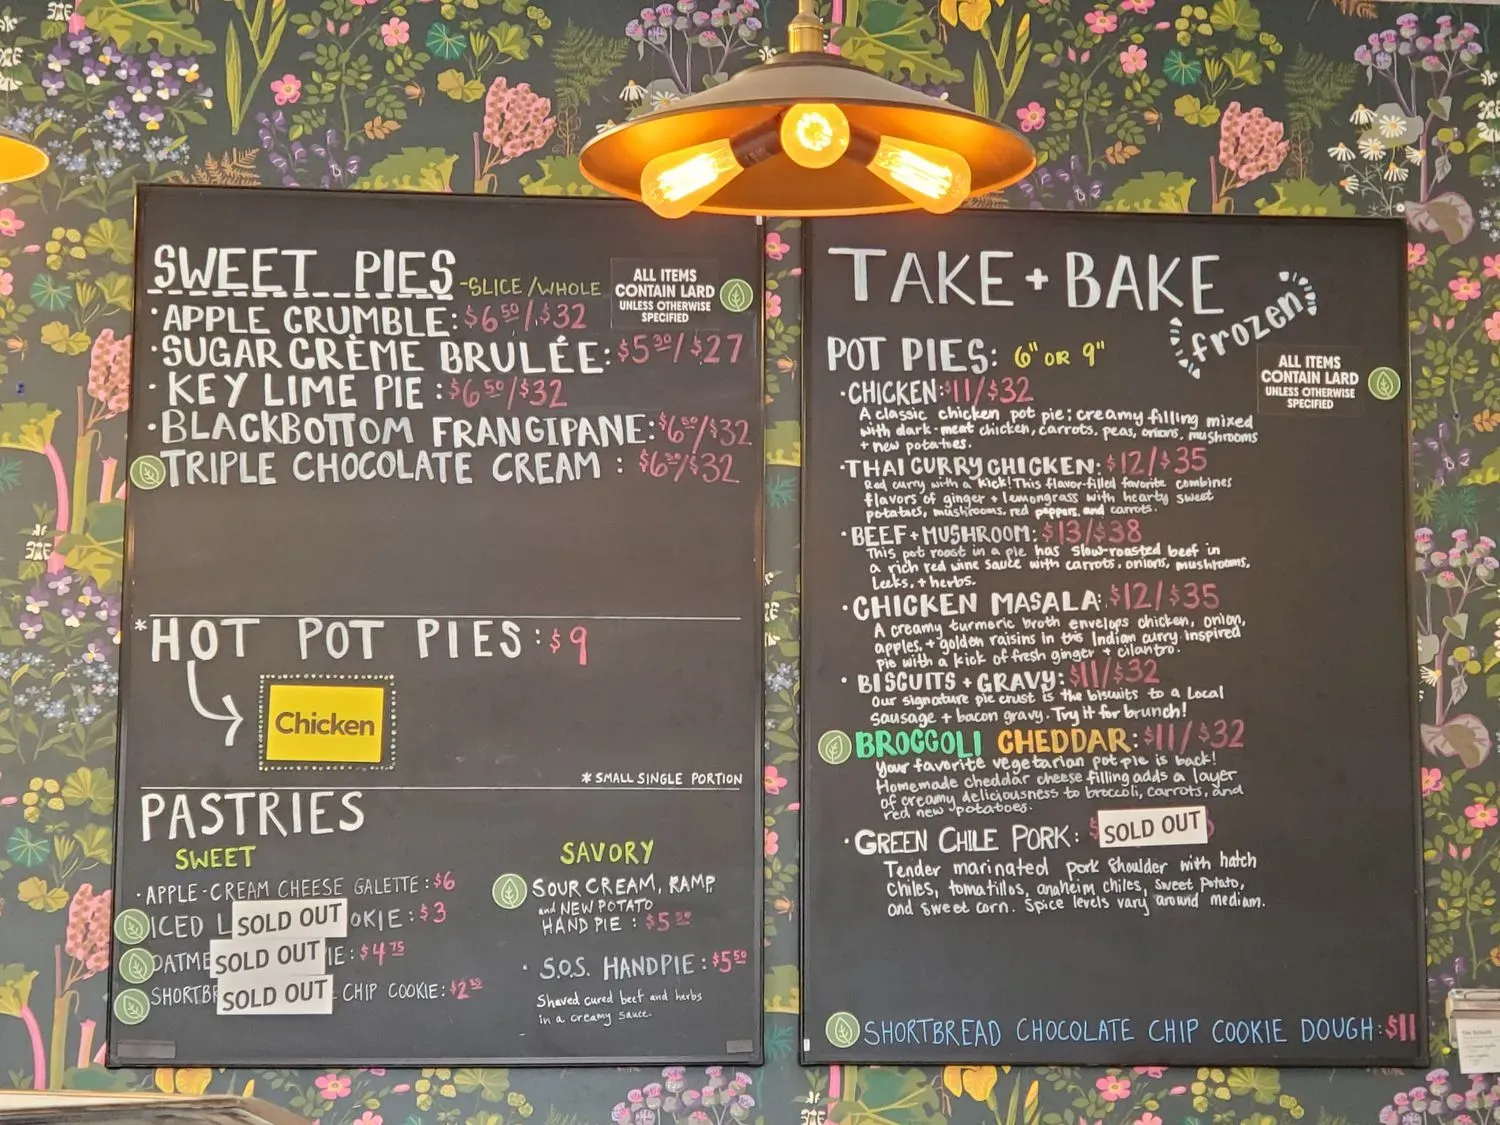 SWEET PIES -SLICE/WHOLE
ALL ITEMS
CONTAIN LARD
UNLESS OTHERWISE
SPECIFIED
· APPLE CRUMBLE: $6⁵⁰/$32
· SUGAR CRÈME BRULÉE: $5³⁰/$27
· KEY LIME PIE: $6⁵⁰/$32
· BLACKBOTTOM FRANGIPANE: $6⁵⁰/$32
TRIPLE CHOCOLATE CREAM: $6⁵⁰/$32
*HOT POT PIES: $9
Chicken
* SMALL SINGLE PORTION
PASTRIES
SWEET
· APPLE-CREAM CHEESE GALETTE: $6
ICED L SOLD OUT OKIE: $3
OATME SOLD OUT IE: $4⁷⁵
SHORTBR SOLD OUT CHIP COOKIE: $2
SAVORY
SOUR CREAM, RAMP
and NEW POTATO
HAND PIE: $5
· S.O.S. HANDPIE: $5⁵⁰
Shaved cured beef and herbs
in a creamy sauce.
TAKE + BAKE
frozen
POT PIES: 6" OR 9"
ALL ITEMS
CONTAIN LARD
UNLESS OTHERWISE
SPECIFIED
· CHICKEN: $11/$32
A classic chicken pot pie: creamy filling mixed
with dark-meat chicken, carrots, peas, onions, mushrooms
+ new potatoes.
· THAI CURRY CHICKEN: $12/$35
Red curry with a kick! This flavor-filled favorite combines
flavors of ginger + lemongrass with hearty sweet
potatoes, mushrooms, red peppers, and carrots.
· BEEF + MUSHROOM: $13/$38
This pot roast in a pie has slow-roasted beef in
a rich red wine sauce with carrots, onions, mushrooms,
leeks, + herbs.
· CHICKEN MASALA: $12/$35
A creamy turmeric broth envelops chicken, onion,
apples, + golden raisins in this Indian curry inspired
pie with a kick of fresh ginger + cilantro.
· BISCUITS + GRAVY: $11/$32
Our signature pie crust is the biscuits to a local
sausage + bacon gravy. Try it for brunch!
BROCCOLI CHEDDAR: $11/$32
Your favorite vegetarian pot pie is back!
Homemade cheddar cheese filling adds a layer
of creamy deliciousness to broccoli, carrots, and
red new potatoes.
· GREEN CHILE PORK: $ SOLD OUT
Tender marinated pork shoulder with hatch
chiles, tomatillos, anaheim chiles, sweet potato,
and sweet corn. Spice levels vary around medium.
SHORTBREAD CHOCOLATE CHIP COOKIE DOUGH: $11